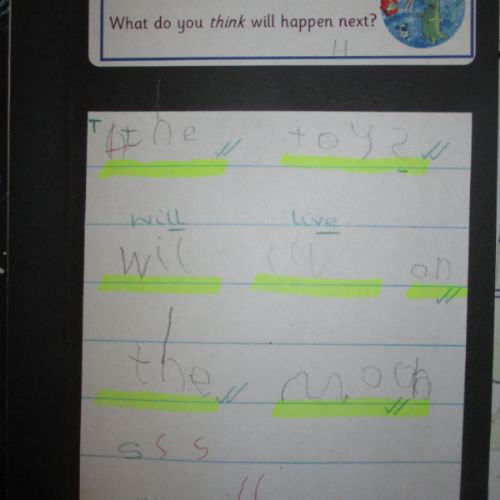 What do you think will happen next?
T the toys
will live
wil liv on
the moon
s s s